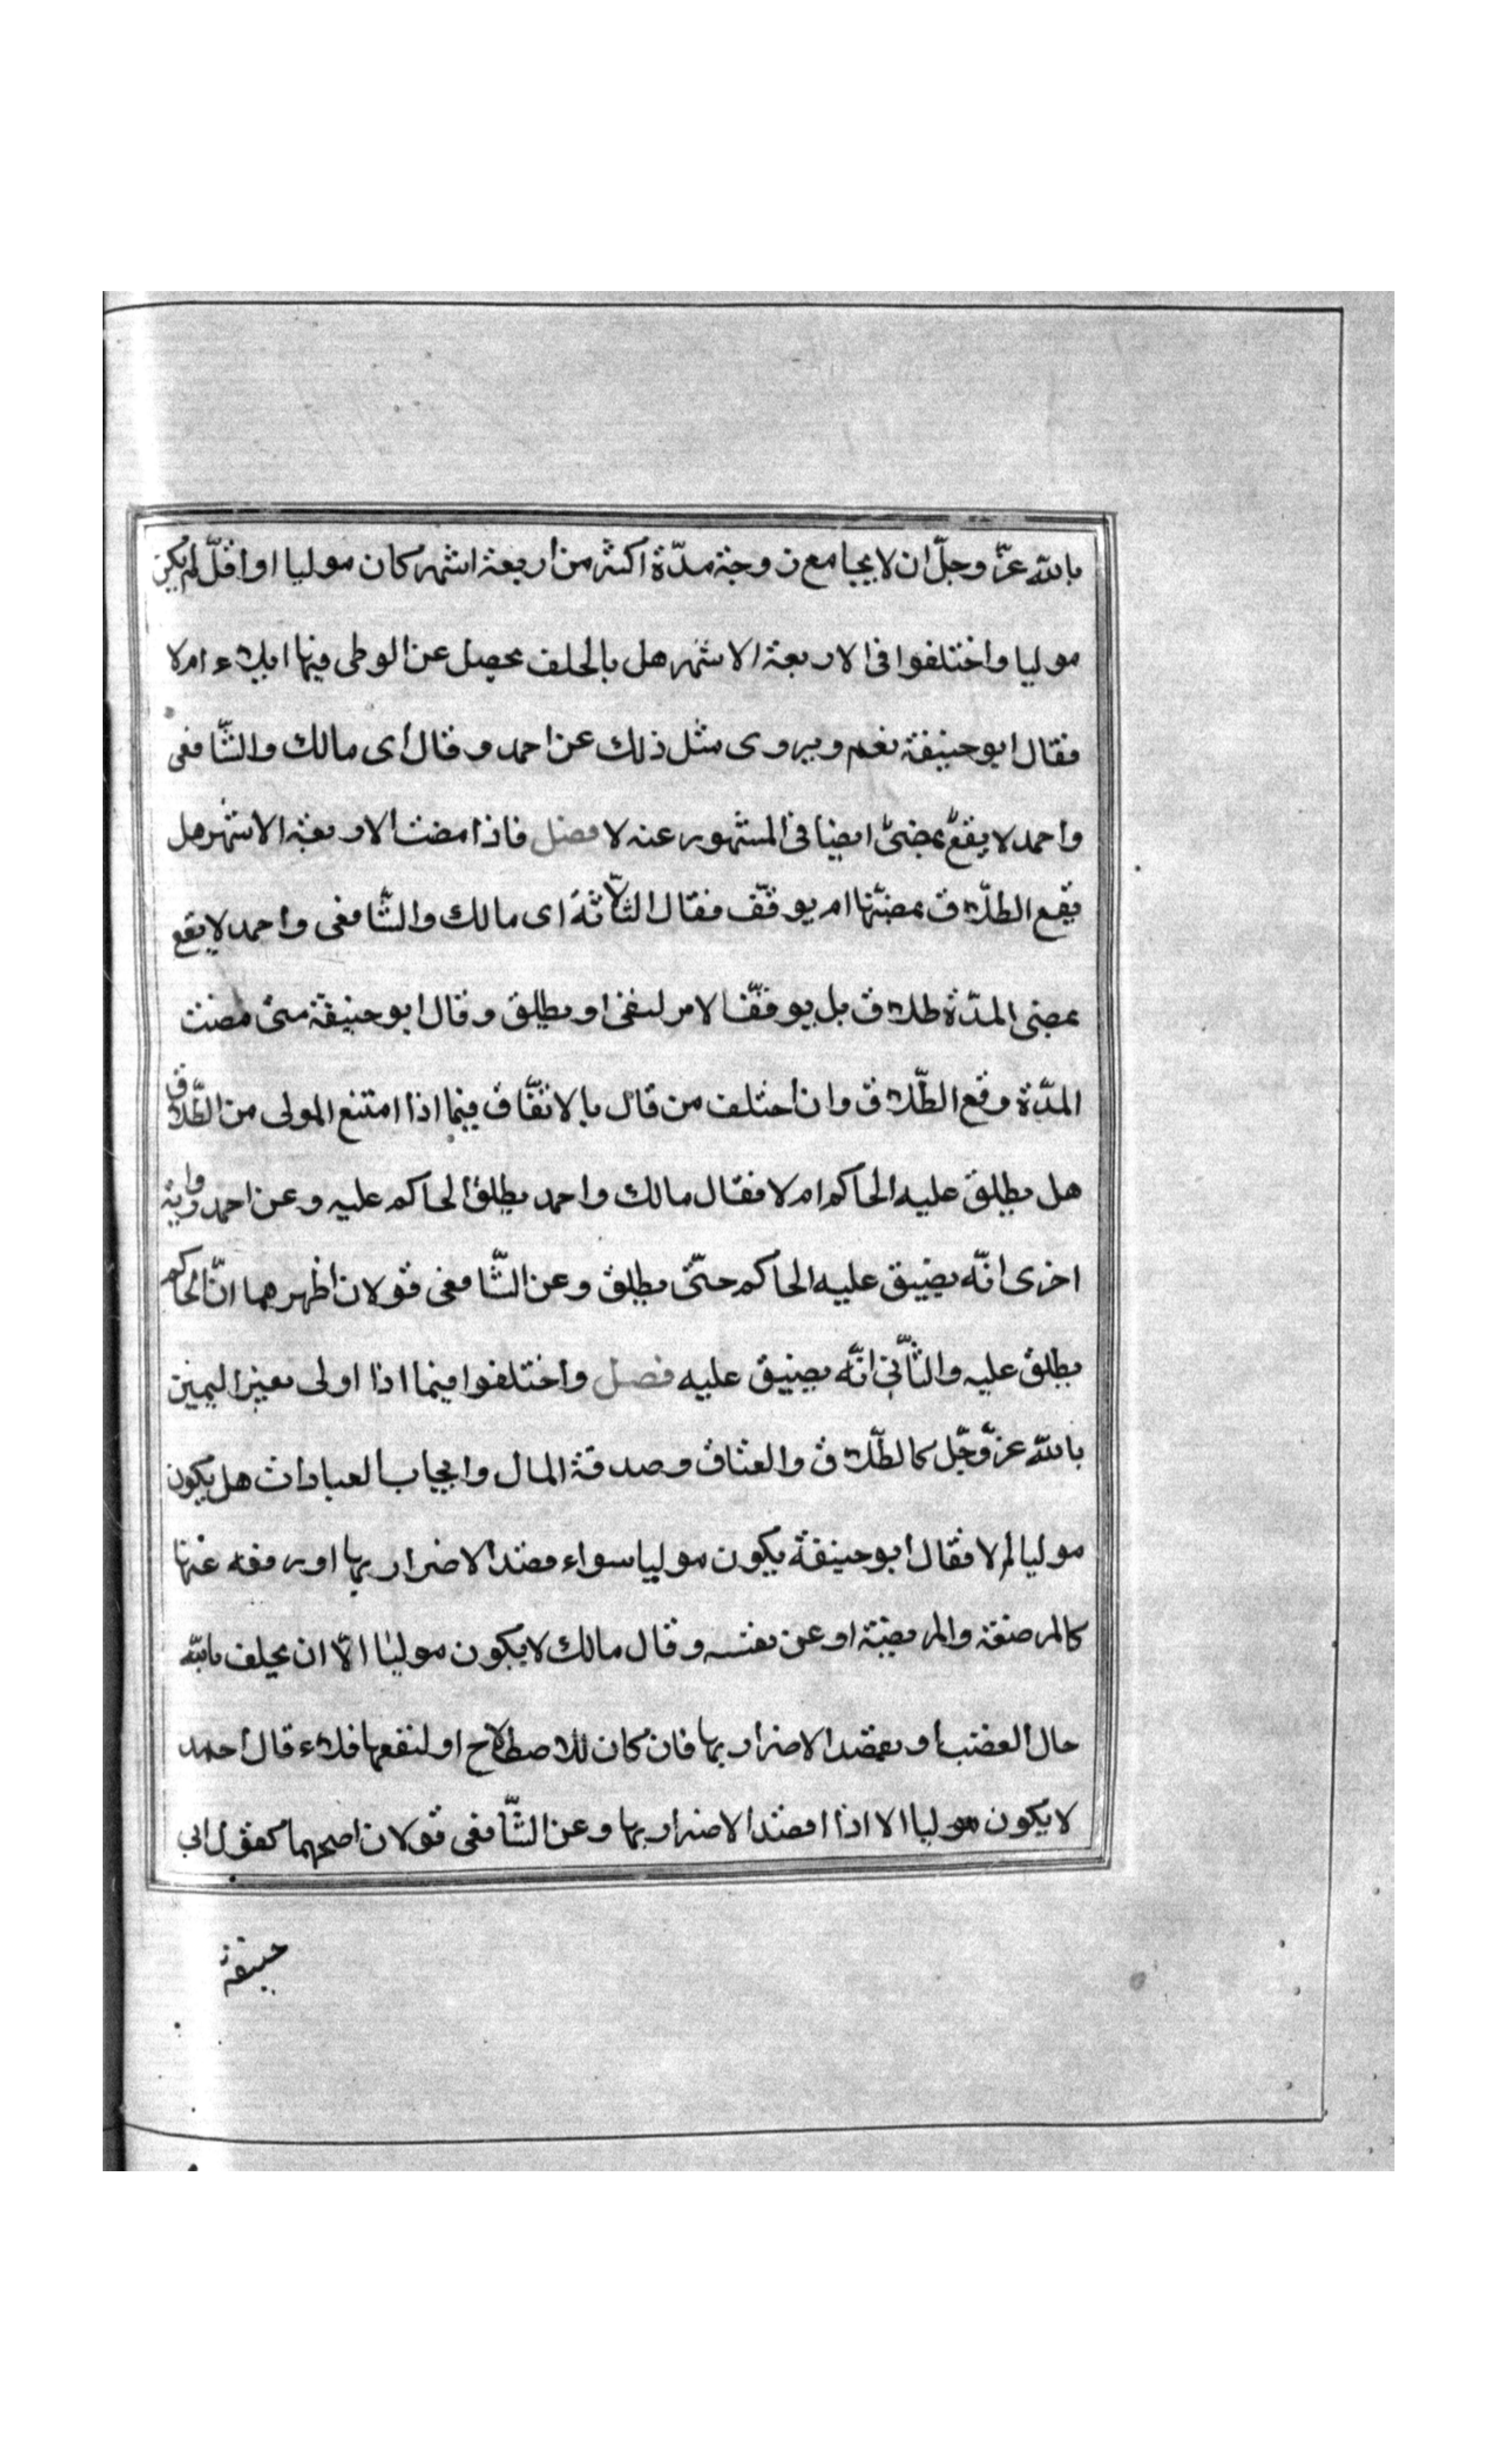 بالله عزّ وجلّ ان لا يجامع زوجة مدّة اكثر من اربعة اشهر كان موليا او اقلّ لم يكن
موليا واختلفوا فى الاربعة الاشهر هل بالحلف يحصل عن الوطى فيها ايلاء ام لا
فقال ابو حنيفة نعم ويروى مثل ذلك عن احمد وقال اى مالك والشّافعى
واحمد لا يقع بمضىّ ايضا فى المشهور عنه لا فصل فاذا مضت الاربعة الاشهر هل
يقع الطلاق بمضيّها ام يوقّف فقال الثّلاثة اى مالك والشّافعى واحمد لا يقع
بمضى المدّة طلاق بل يوقّف الامر ليفئ او يطلق وقال ابو حنيفة متى مضت
المدّة وقع الطّلاق وان اختلف من قال بالاتّفاق فيما اذا امتنع المولى من الطّلاق
هل يطلق عليه الحاكم ام لا فقال مالك واحمد يطلق الحاكم عليه وعن احمد رواية
اخرى انّه يضيق عليه الحاكم حتّى يطلق وعن الشّافعى قولان اظهرهما انّ الحاكم
يطلق عليه والثّانى انّه يضيق عليه فصل واختلفوا فيما اذا اولى بغير اليمين
بالله عزّ وجّل كالطّلاق والعتاق وصدقة المال وايجاب العبادات هل يكون
موليا ام لا فقال ابو حنيفة يكون موليا سواء قصد الاضرار بها او رفعه عنها
كالمرضعة والمريضة او عن نفسه وقال مالك لا يكون موليا الّا ان يحلف بالله
حال الغضب او بقصد الاضرار بها فان كان للاصطلاح او لنفعها فلاء قال احمد
لا يكون موليا الا اذا اقصد الاضرار بها وعن الشّافعى قولان اصحهما كقول ابى
حنيفة